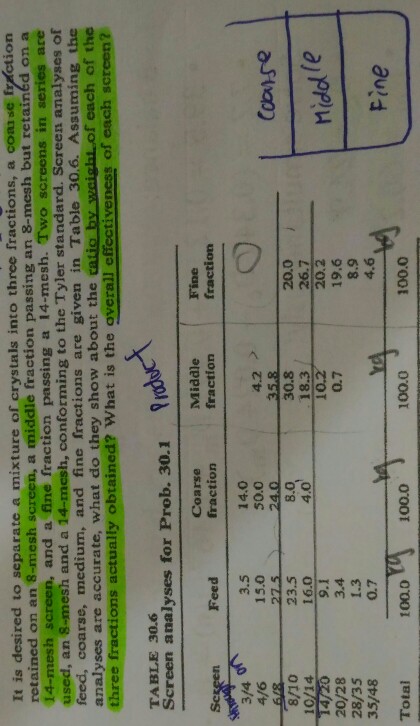 It is desired to separate a mixture of crystals into three fractions, a coarse fraction
retained on an 8-mesh screen, a middle fraction passing an 8-mesh but retained on a
14-mesh screen, and a fine fraction passing a 14-mesh. Two screens in series are
used, an 8-mesh and a 14-mesh, conforming to the Tyler standard. Screen analyses of
feed, coarse, medium, and fine fractions are given in Table 30.6. Assuming the
analyses are accurate, what do they show about the ratio by weight of each of the
three fractions actually obtained? What is the overall effectiveness of each screen?
TABLE 30.6 Product
Screen analyses for Prob. 30.1
Screen Feed Coarse fraction Middle fraction Fine fraction
on
3/4 3.5 14.0 0
4/6 15.0 50.0 4.2
6/8 27.5 24.0 35.8
8/10 23.5 8.0 30.8 20.0
10/14 16.0 4.0 18.3 26.7
14/20 9.1 10.2 20.2
20/28 3.4 0.7 19.6
28/35 1.3 8.9
35/48 0.7 4.6
kg kg kg kg
Total 100.0 100.0 100.0 100.0
Coarse
Middle
Fine